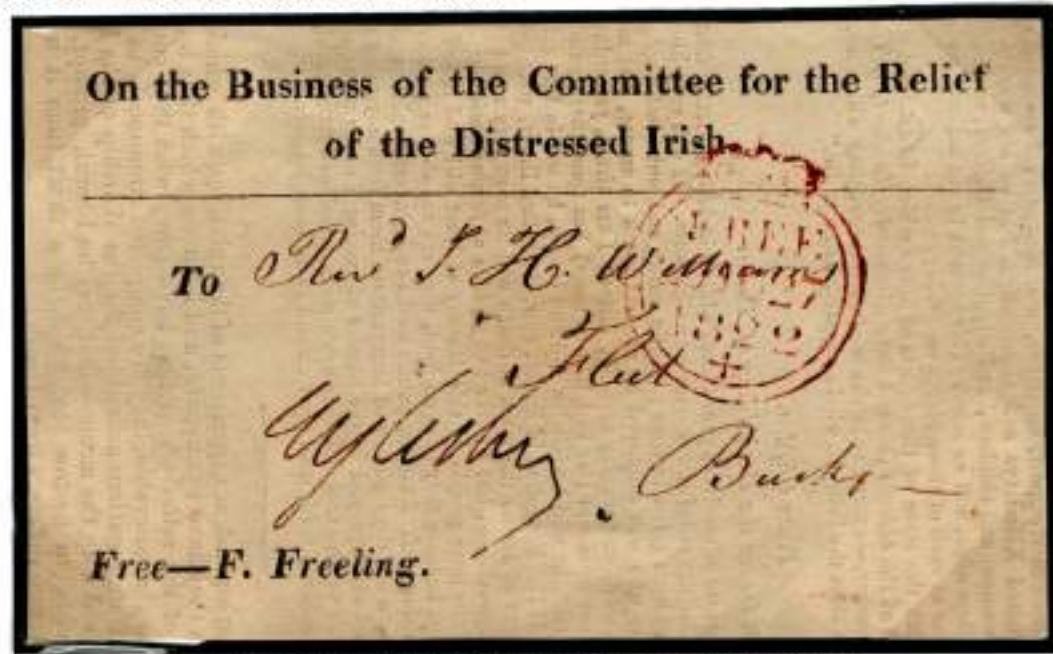 On the Business of the Committee for the Relief
of the Distressed Irish.
To Revd J. H. Williams
Fleet
Bucks
Free—F. Freeling.
FREE
1822